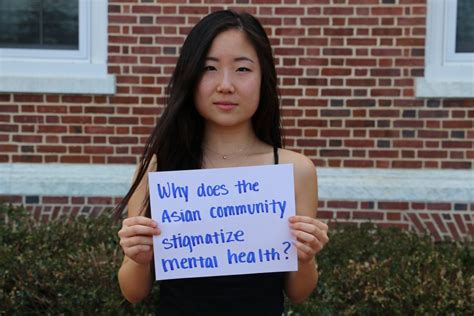 Why does the
Asian community
stigmatize
mental health?